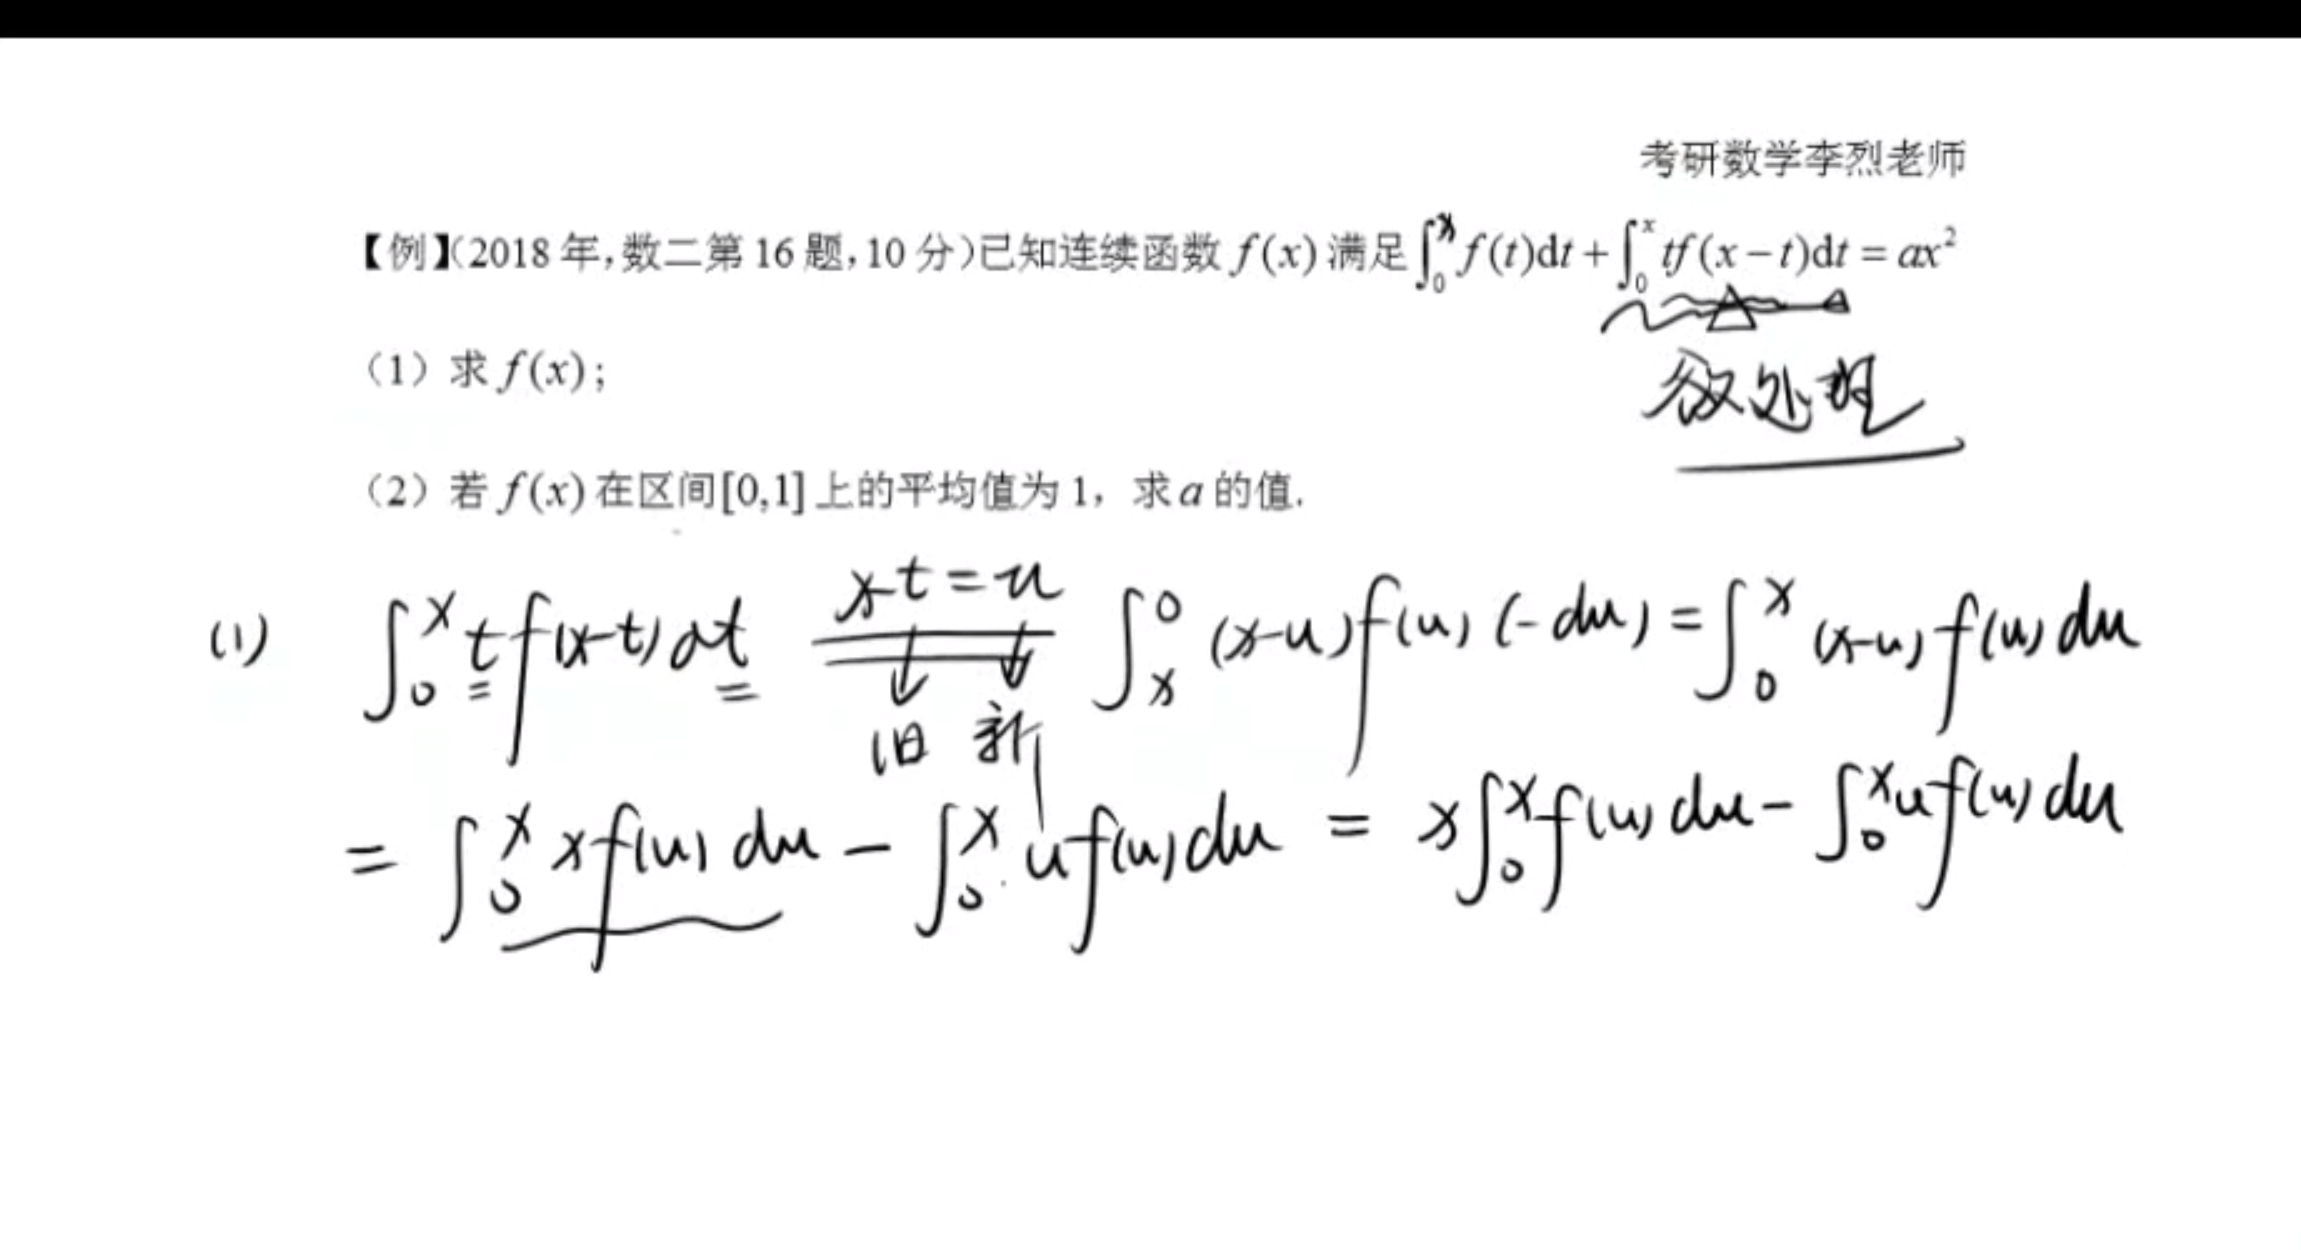 考研数学李烈老师
【例】(2018年,数二第16题,10分)已知连续函数 f(x) 满足 ∫₀ˣ f(t)dt + ∫₀ˣ tf(x−t)dt = ax²
处理
(1) 求 f(x);
(2) 若 f(x) 在区间[0,1]上的平均值为1, 求 a 的值.
(1) ∫₀ˣ t f(x-t) dt x-t=u ∫ₓ⁰ (x-u) f(u) (-du) = ∫₀ˣ (x-u) f(u) du
旧 新
= ∫₀ˣ x f(u) du − ∫₀ˣ u f(u) du = x∫₀ˣ f(u) du − ∫₀ˣ u f(u) du